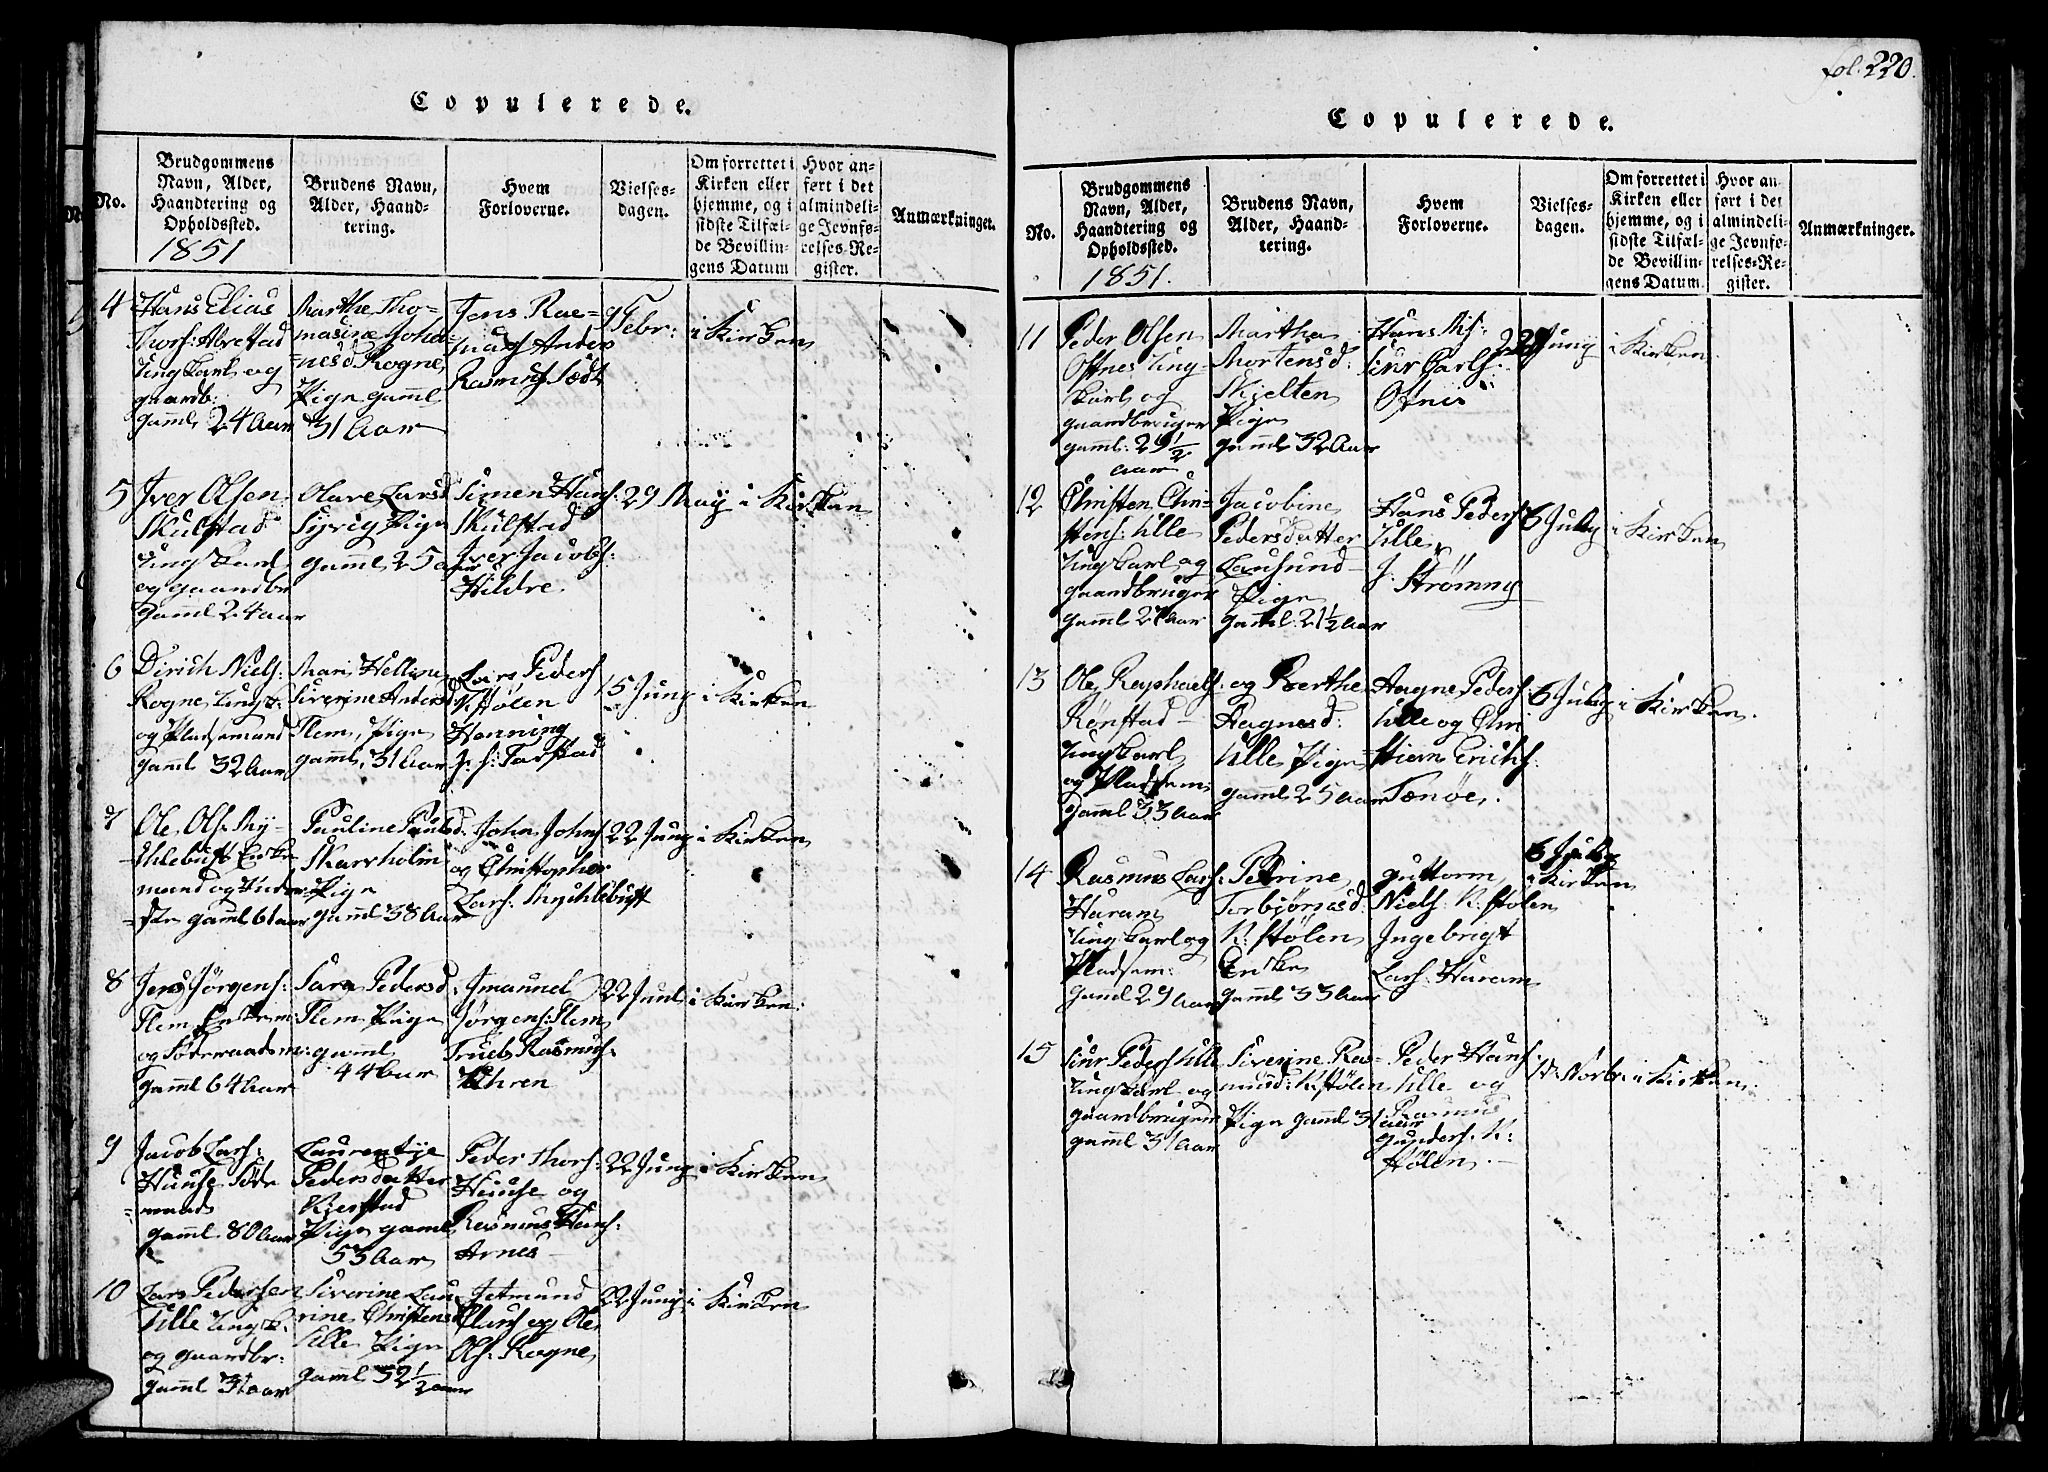 Copulerede.
No.
Brudgommens
Navn, Alder,
Haandtering og
Opholdssted.
1851
Brudens Navn,
Alder, Haand-
tering.
Hvem
Forloverne.
Vielses-
dagen.
Om forrettet i
Kirken eller
hjemme, og i
sidste Tilfæl-
de Bevillin-
gens Datum
Hvor an-
ført i det
almindeli-
ge Jevnfø-
relses-Re-
gister.
Anmærkninger.
4
Hans Elias
Thors: Abrstad
Ungkarl og
gaardb:
gaml 24 Aar
Marthe Tho-
masine Joha-
nesd Rogne
Pige gaml
31 Aar
Jens Ras-
Anders
Rasmus Sædt
9 Febr:
i Kirken
5
Iver Olsen
Skulstad
Ungkarl
og gaardbr
gaml 24 aar
Olave Larsd
Pige
gaml 25 aar
Simen Hans:
Skulstad
Iver Jacobs:
Hildre
29 May
i Kirken
6
Dirich Niels:
Rogne Ungk:
og Pladsmand
gaml 32 Aar
Mari Hellene
Siverine Andersd
Flem, Pige
gaml, 31 Aar
Lars Peders
K:stølen
Henning
J: s: Farstad
15 Juny
i Kirken
7
Ole Ols: My-
klebust Enke-
mand og
gaml 61 aar
Pauline Paulsd:
Skarrholm
Pige
gaml 38 Aar
John Johns
og Christopher
Lars: Mychlebust
22 Juny
i Kirken
8
Jens Jørgens:
Flem Enkem:
og Føderaadsm:
gaml 64 Aar
Sara Pedersd
Flem Pige
gaml
44 Aar
Imanuel
Jørgens: Flem
Truels Rasmus:
Uhren
22 Juni
i Kirken:
9
Jacob Lars:
Huuse Føde
mand
gaml. 80 Aar
Laurentze
Pedersdatter
Kierstad
Pige gaml
53 Aar
Peder Thors:
Huuse og
Rasmus Hans:
Arnes
22 Juny
i Kirken
10
Lars Pedersen
Ulle Ungk.
og gaardbr:
gaml 31 aar
Siverine Lau
rine Christensd
Ulle Pige
gaml 32½ aar
Jetmund
og Ole
Ols: Rogne
22 Juny
i Kirken
fol. 220.
Copulerede.
No.
Brudgommens
Navn, Alder,
Haandtering og
Opholdssted.
1851.
Brudens Navn,
Alder, Haand-
tering.
Hvem
Forloverne.
Vielses-
dagen.
Om forrettet i
Kirken eller
hjemme, og i
sidste Tilfæl-
de Bevillin-
gens Datum.
Hvor an-
ført i det
almindeli-
ge Jevnfø-
relses-Re-
gister.
Anmærkninger.
11
Peder Olsen
Oftnes Ung-
karl og
gaardbruger
gaml: 29½
aar
Martha
Mortensd:
Skjelten
Pige
gaml 32 Aar
Hans
Siur Carls:
Oftnes
22 Juny
i Kirken.
12
Christen Chri-
stens: Ulle
Ungkarl og
gaardbruger
gaml 27 Aar
Jacobine
Pedersdatter
Lausund
Pige
gaml: 21½ Aar
Hans Peders:
Ulle
J. Strømmes
6 July
i Kirken
13
Ole Raphaels:
Rønstad
Ungkarl
og Pladsem:
gaml 33 Aar
og Berthe
Hagnesd:
Ulle Pige
gaml 25 Aar
Hagne Peders:
Ulle og Chri
stiern Erichs:
Tenøe.
6 July
i Kirken.
14
Rasmus Lars:
Haram
Ungkarl og
Pladsem:
gaml 29 Aar
Petrine
Torbjørnsd:
K:stølen
Enke
gaml 33 Aar
Guttorm
Niels: K:stølen
Ingebrigt
Lars: Haram
6 July
i Kirken
15
Siur Peders Ulle
Ungkarl og
gaardbruger
gaml 31 Aar
Siverine Ras-
musd: K:stølen
Pige gaml 31 aar
Peder Hans:
Ulle og
Rasmus
Gunders: K:
stølen.
Norbr:
i Kirken.